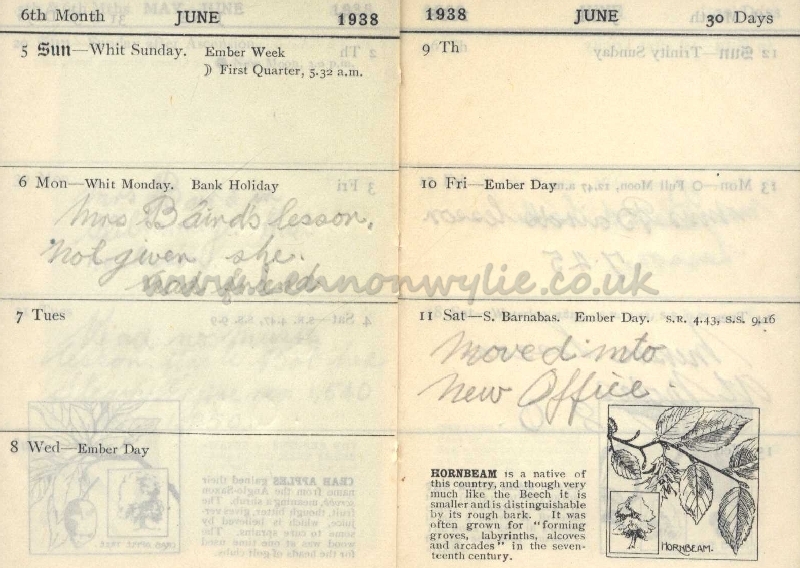 6th Month JUNE 1938
5 Sun—Whit Sunday. Ember Week
☽ First Quarter, 5.32 a.m.
6 Mon—Whit Monday. Bank Holiday
Mrs Baird's lesson.
Not given she.
had friend
www.lennonwylie.co.uk
7 Tues
8 Wed—Ember Day
1938 JUNE 30 Days
9 Th
10 Fri—Ember Day
11 Sat—S. Barnabas. Ember Day. S.R. 4.43, S.S. 9.16
Moved into
New Office.
HORNBEAM is a native of
this country, and though very
much like the Beech it is
smaller and is distinguishable
by its rough bark. It was
often grown for "forming
groves, labyrinths, alcoves
and arcades" in the seven-
teenth century.
HORNBEAM.